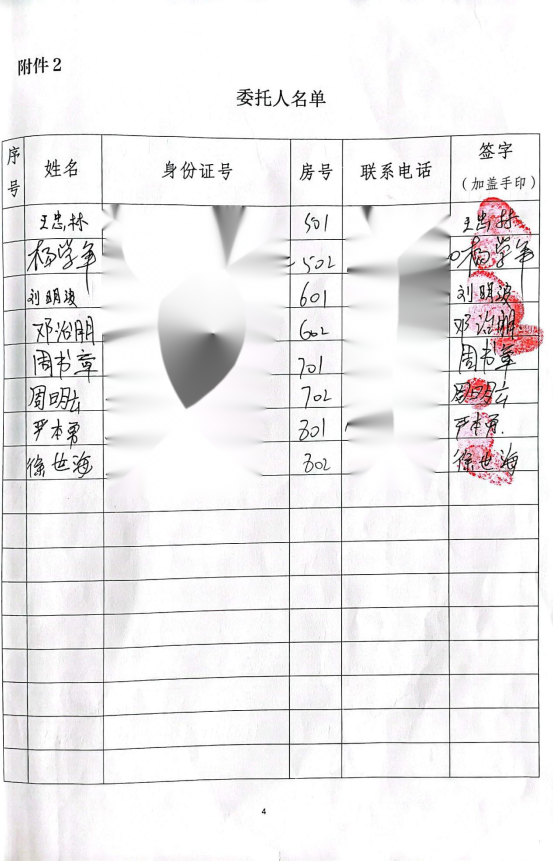 附件2
委托人名单
序号 姓名 身份证号 房号 联系电话 签字（加盖手印）
王忠林 501 王忠林
杨学军 502 杨学军
刘明波 601 刘明波
邓治朋 602 邓治朋
周书章 701 周书章
周明云 702 周明云
严本勇 801 严本勇
徐世海 802 徐世海
4